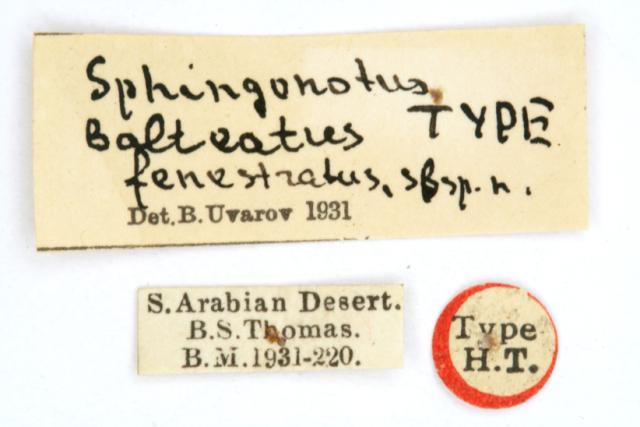 Sphingonotus
Balteatus TYPE
fenestratus, sbsp. n.
Det. B. Uvarov 1931
S. Arabian Desert.
B.S. Thomas.
B.M. 1931-220.
Type
H.T.